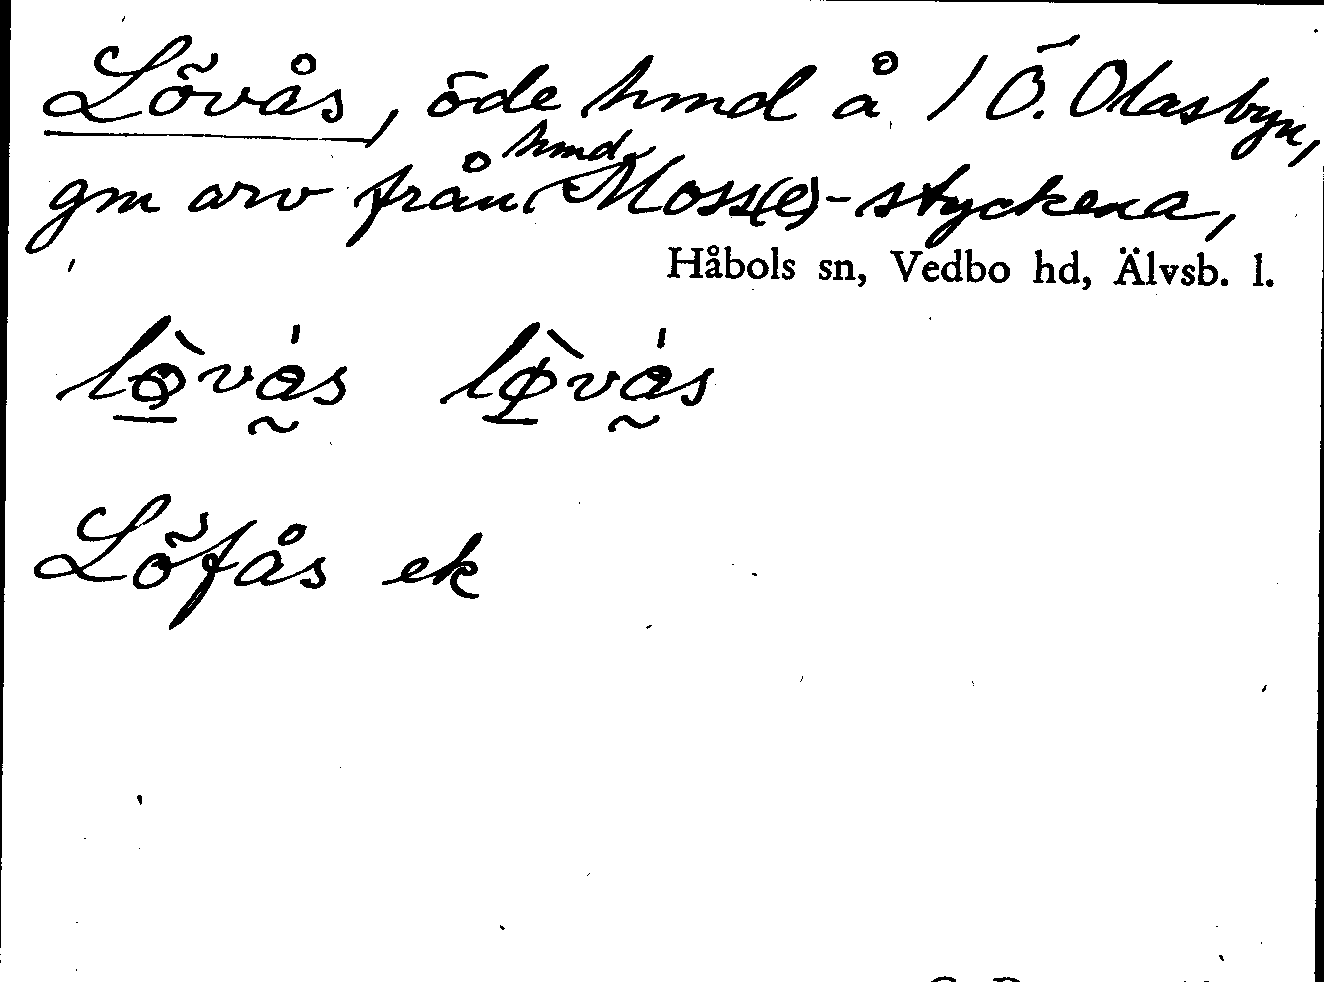 Lövås, öde hmd å 1 Ö. Olasbyn,
gm arv från hmd Moss(e)-styckena,
Håbols sn, Vedbo hd, Älvsb. l.
Löfås ek